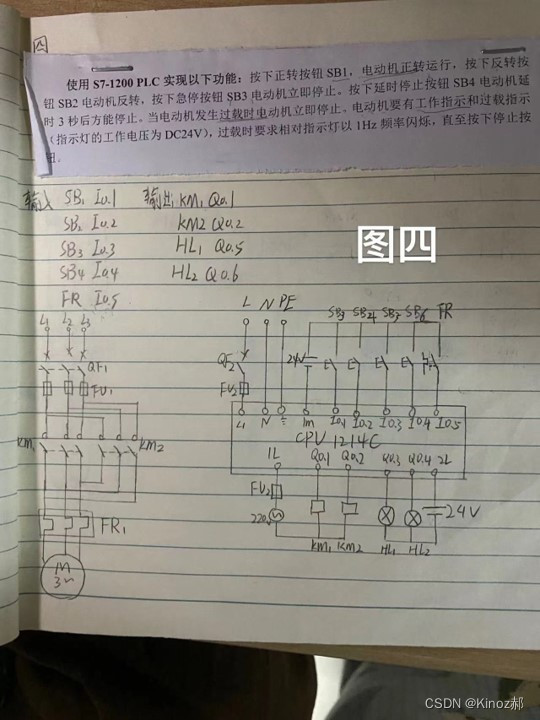 四
使用 S7-1200 PLC 实现以下功能：按下正转按钮 SB1，电动机正转运行，按下反转按
钮 SB2 电动机反转，按下急停按钮 SB3 电动机立即停止。按下延时停止按钮 SB4 电动机延
时 3 秒后方能停止。当电动机发生过载时电动机立即停止。电动机要有工作指示和过载指示
（指示灯的工作电压为 DC24V），过载时要求相对指示灯以 1Hz 频率闪烁，直至按下停止按
钮。
输入 SB1 I0.1 输出 KM1 Q0.1
SB2 I0.2 KM2 Q0.2
SB3 I0.3 HL1 Q0.5
SB4 I0.4 HL2 Q0.6
FR I0.5
图四
L1 L2 L3
L N PE
SB3 SB4 SB5 SB6 FR
QF1
QF2
24V
FU1
FU2
L1 N 1m I0.1 I0.2 I0.3 I0.4 I0.5
CPU 1214C
KM1 KM2
1L Q0.1 Q0.2 Q0.3 Q0.4 2L
FU2
24V
220
FR1
KM1 KM2 HL1 HL2
M
3~
CSDN @Kinoz郝